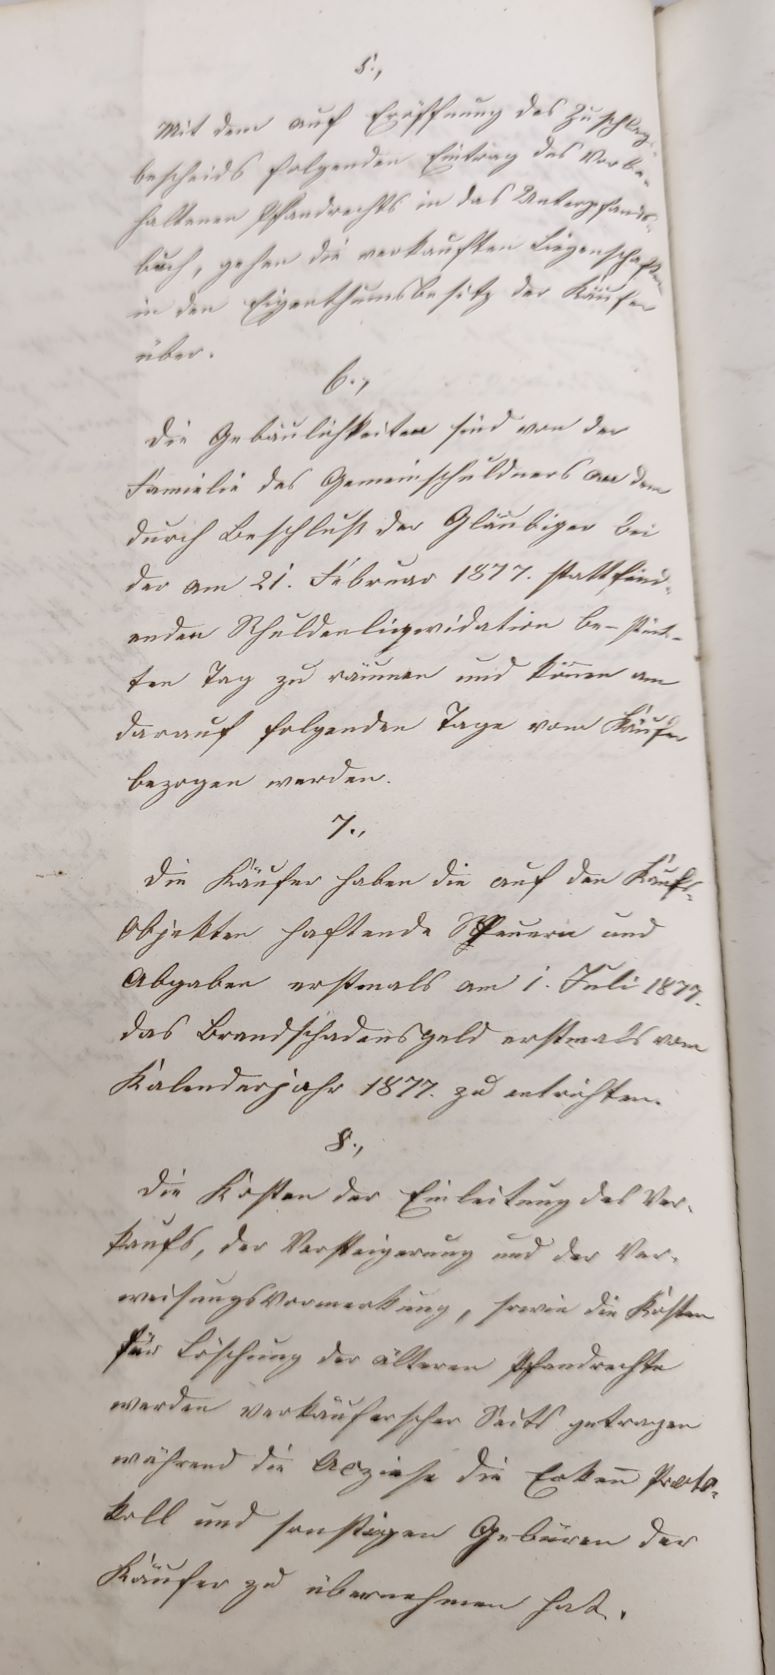 5.,
Mit dem auf Eröffnung des Zuschlags-
bescheids folgenden Eintrag des vorbe-
haltenen Pfandrechts in das Unterpfands-
buch, gehen die verkauften Liegenschaften
in den Eigenthumsbesitz der Käufer
über.
6.,
Die Gebäulichkeiten sind von der
Familie des Gemeinschuldners an dem
durch Beschluß der Gläubiger bei
der am 21. Februar 1877. stattfind-
enden Schuldenliquidation be-stimt-
ten Tag zu räumen und könen am
darauf folgenden Tage vom Käufer
bezogen werden.
7.,
Die Käufer haben die auf den Kaufs-
Objekten haftende Steuern und
Abgaben erstmals am 1. Juli 1877.
das Brandschadensgeld erstmals vom
Kalenderjahr 1877. zu entrichten.
8.,
Die Kosten der Einleitung des Ver-
kaufs, der Versteigerung und der Ver-
weisungsvormerkung, sowie die Kosten
für Löschung der älteren Pfandrechte
werden verkäuferscher Seits getragen
während die Acziese die Proto-
koll und sonstigen Gebüren der
Käufer zu übernehmen hat.